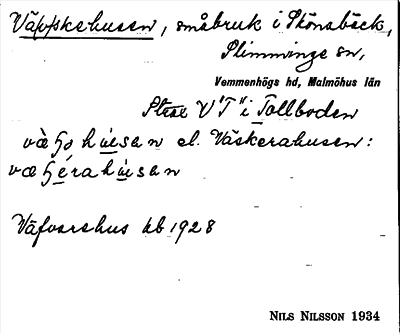 Väfskehusen, småbruk i Stönabäck,
Slimminge sn,
Vemmenhögs hd, Malmöhus län
Strax V "T" i Tollboden
hùsen el. Väskerahusen:
Väfvarehus kb 1928
NILS NILSSON 1934